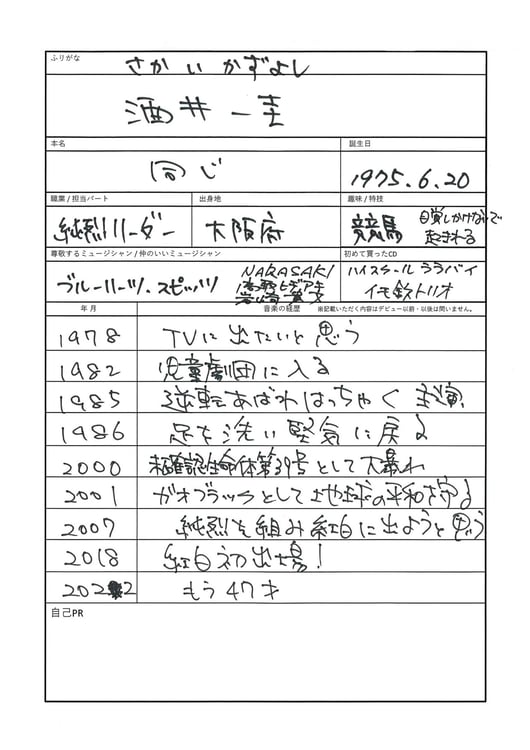 ふりがな
さかい かずよし
酒井一圭
本名
誕生日
同じ
1975.6.20
職業/担当パート
出身地
趣味/特技
純烈リーダー
大阪府
競馬
目覚しかけないで
起きれる
尊敬するミュージシャン/仲のいいミュージシャン
初めて買ったCD
ブルーハーツ、スピッツ
NARASAKI
ハイスクールララバイ
イモ欽トリオ
年月
音楽の経歴 ※記載いただく内容はデビュー以前・以後は問いません。
1978 TVに出たいと思う
1982 児童劇団に入る
1985 逆転あばれはっちゃく 主演
1986 足を洗い堅気に戻る
2000 未確認生命体第39号として大暴れ
2001 ガオブラックとして地球の平和を守る
2007 純烈を組み紅白に出ようと思う
2018 紅白初出場!
2022 もう47才
自己PR